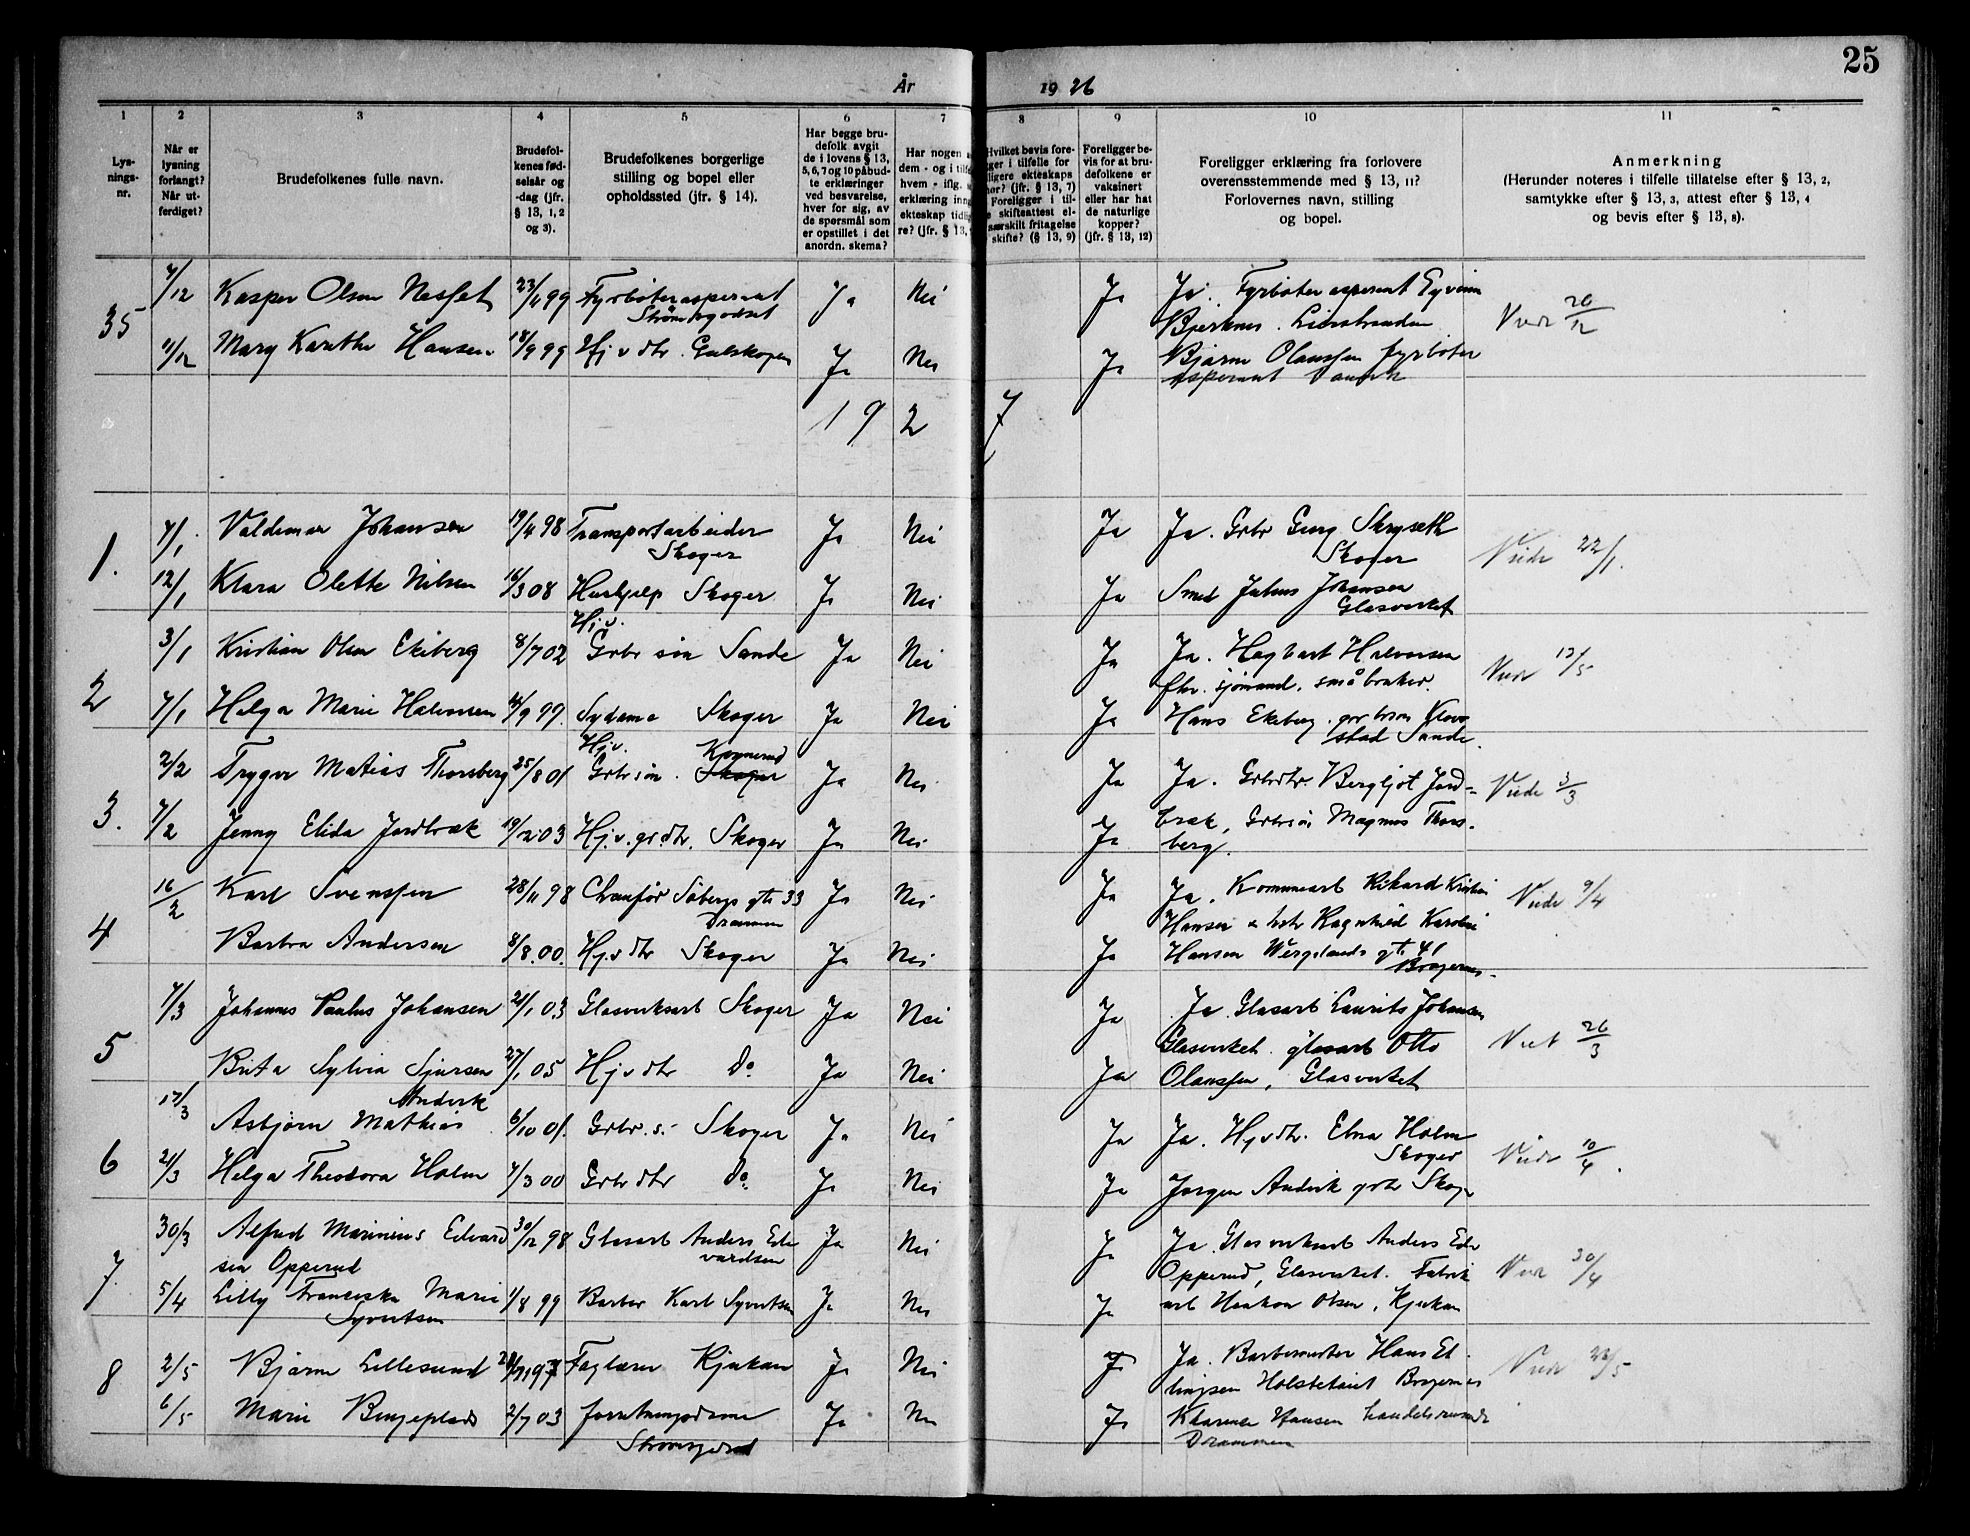 25
År 19 26
1 2 3 4 5 6 7 8 9 10 11
Lys-
nings-
nr.
Når er
lysning
forlangt?
Når ut-
ferdiget?
Brudefolkenes fulle navn.
Brudefol-
kenes fød-
selsår og
-dag (jfr.
§ 13, 1, 2
og 3).
Brudefolkenes borgerlige
stilling og bopel eller
opholdssted (jfr. § 14).
Har begge bru-
defolk avgit
de i lovens § 13,
5, 6, 7 og 10 påbud-
te erklæringer
ved besvarelse,
hver for sig, av
de spørsmål som
er opstillet i det
anordn. skema?
Har nogen
dem - og i tilfe
hvem - iflg.
erklæring inng
ekteskap tidlig
re? (jfr. § 13,
Hvilket bevis fore-
ger i tilfelle for
ligere ekteskaps
hør? (jfr. § 13, 7)
Foreligger i til-
e skifteattest el-
særskilt fritagelse
skifte? (§ 13, 9)
Foreligger be-
vis for at bru-
defolkene er
vaksinert
eller har hat
de naturlige
kopper?
(jfr. § 13, 12)
Foreligger erklæring fra forlovere
overensstemmende med § 13, 11?
Forlovernes navn, stilling
og bopel.
Anmerkning
(Herunder noteres i tilfelle tillatelse efter § 13, 2,
samtykke efter § 13, 3, attest efter § 13, 4
og bevis efter § 13, 8).
35 7/12 Kasper Olsen Nesset 23/11 99 Fyrbøteraspirant Ja Nei Ja Ja. Fyrbøter aspirant Eyvinn
Strømsgodset Bjerknes. Lierstranden Viede 26/12
11/12 Mary Karethe Hansen 18/9 99 Hj. v dtr. Gulskogen Ja Nei Ja Bjarne Olaussen fyrbøter
aspirant
19 2 7
1. 7/1 Valdemar Johansen 19/4 98 Transportarbeider Ja Nei Ja Ja. Grbr Georg Skryseth
Skoger Skoger Viede 22/1.
12/1 Klara Olette Nilsen 16/3 08 Hushjelp Skoger Ja Nei Ja Smed Julius Johansen
Hj. v. Glasverket
2 3/1 Kristian Olsen Ekeberg 8/7 02 Grbr søn Sande Ja Nei Ja Ja. Hagbart Halvorsen
fhv. sjømand. småbruker. Viede 13/5
7/1 Helga Marie Halvorsen 14/9 99. Sydame Skoger Ja Nei Ja Hans Ekeberg. grbrsøn Klov
Hj. v. stad Sande.
3. 2/2 Trygve Matias Thorsberg 25/8 01 Grbrsøn. Skoger Ja Nei Ja Ja. Grbrdtr. Bergljot Jord-
Viede 3/3
7/2 Jenny Elida Jordbræk 19/2 03 Hj. v. gr. dtr. Skoger Ja Nei Ja bræk, Grbrsøn Magnus Thors-
berg.
4 16/2 Karl Svenssen 28/11 98 Chaufør Søbergs gt. 33 Ja Nei Ja Ja. Kommunearb Rikard Kristian
Drammen Hansen & hstr Ragnhild Karoline Viede 9/4
Barbra Andersen 8/8. 00. Hj. v dtr Skoger Ja Nei Ja Hansen Wergelands gt. 41
Bragernes.
5 1/3 Johannes Paulus Johansen 21/1 03 Glasverksarb Skoger Ja Nei Ja Ja Glasarb Laurits Johansen
Glasverket. glasarb Otto Viet 26/3
Brita Sylvia Sjursen 27/1 05 Hj v dtr Do Ja Nei Ja Olaussen, Glasverket
6 17/3 Asbjørn Mathias Anderk 6/10 01. Grbr. s. Skoger Ja Nei Ja Ja. Hj. v dtr. Elna Holm
Skoger Viede 10/4.
21/3 Helga Theodora Holm 7/3 00 Grbr dtr Do. Ja Nei Ja Jørgen Anderk grbr Skoger
7. 30/3 Alfred Marinius Edvard 30/12 98 Glasarb Anders Ed- Ja Nei Ja Ja. Glasverksarb Anders Edv
sen Opperud vardsen Opperud, Glasverket. Fabrik Viede 30/4
5/4 Lilly Franciska Marie 1/8 99 Barber Karl Syvertsen Ja Nei Ja arb Haakon Olsen, Rjukan
Syvertsen
8 2/5 Bjarne Lillesund 97 Faglærer Rjukan Ja Nei Ja Ja. Barbermester Hans El-
lingsen Bragernes Viede 22/5
6/5 Marie Bingeplads 2/7 03 forretningsdame Ja Nei Ja Klarence Hansen handelsreisende
Strømsgodset Drammen